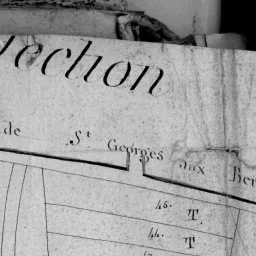 ection
de St Georges aux Ber
45. T.
44. T